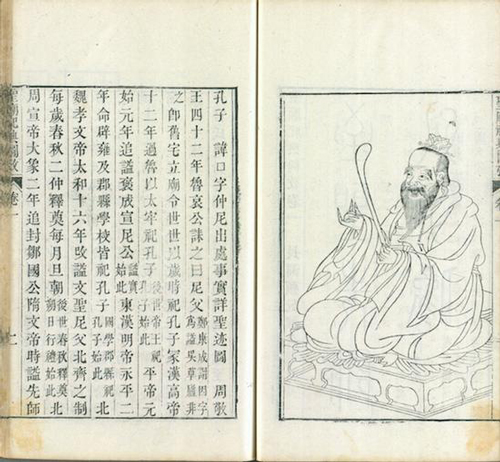 孔子 諱口字仲尼出處事實詳聖迹圖 周敬
王四十二年魯哀公誄之曰尼父鄭康成謂因字為諡吳草廬非
之即舊宅立廟令世世以歲時祀孔子家漢高帝
十二年過魯以太牢祀孔子後世帝王祀孔子始此平帝元
始元年追諡褒成宣尼公諡實始此東漢明帝永平二
年命辟雍及郡縣學校皆祀孔子國學郡縣祀孔子始此北
魏孝文帝太和十六年改諡文聖尼父北齊之制
每歲春秋二仲釋奠每月旦朝後世春秋釋奠朔日行禮始此北
周宣帝大象二年追封鄒國公隋文帝時諡先師
聖廟祀典圖攷 卷一